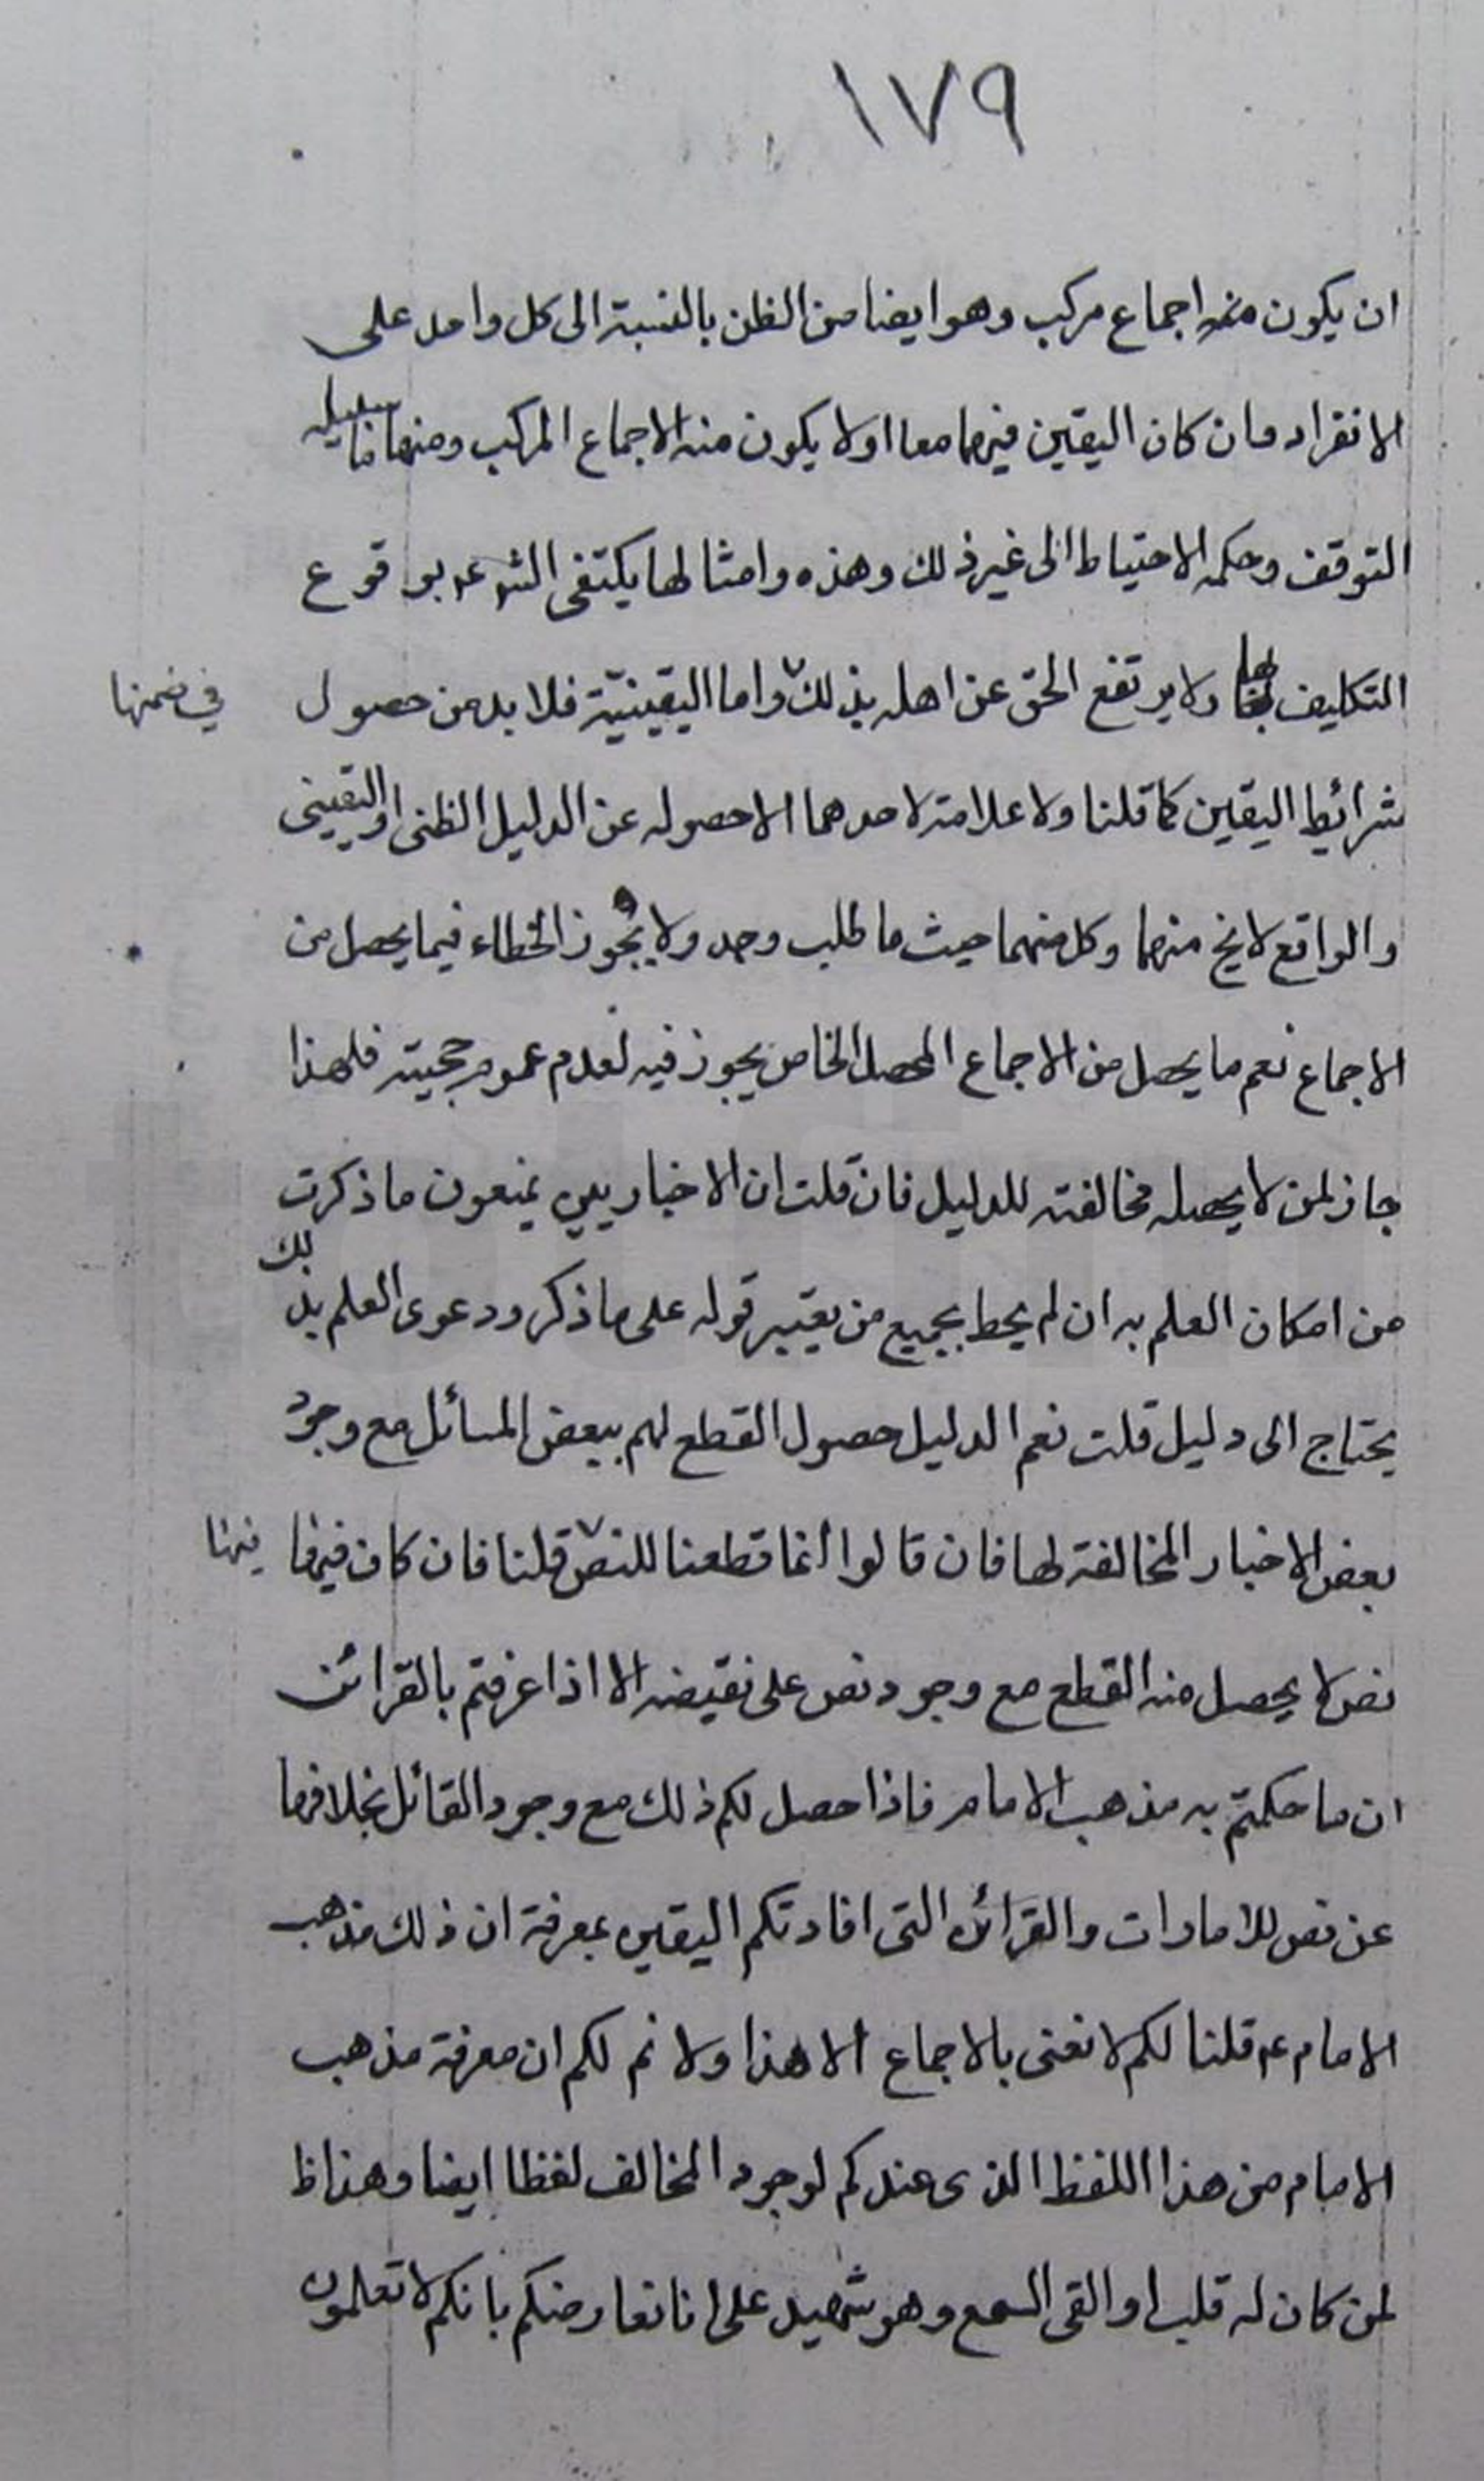 ١٧٩
ان يكون منه اجماع مركب وهو ايضا من الظن بالنسبة الى كل واحد على
الانفراد وان كان اليقين فيهما معا او لا يكون منه الاجماع المركب ومنها ما سبيله
التوقف وحكمه الاحتياط الى غير ذلك وهذه وامثالها يكتفى الشرع بوقوع
التكليف بها ولا يرتفع الحق عن اهله بذلك واما اليقينيّة فلا بد من حصول
في ضمنها
شرائط اليقين كما قلنا ولا علامة لاحدهما الا حصوله عن الدليل الظنى او اليقينى
والواقع لا يخ منهما وكل منهما حيث ما طلب وجد ولا يجوز الخطاء فيما يحصل من
الاجماع نعم ما يحصل من الاجماع المحصل الخاص يجوز فيه لعدم عموم حجيته فلهذا
جاز لمن لا يحصله مخالفته للدليل فان قلت ان الاخباريين يمنعون ما ذكرت
من امكان العلم به ان لم يحط بجميع من يعتبر قوله على ما ذكر ودعوى العلم بذلك
يحتاج الى دليل قلت نعم الدليل حصول القطع لهم ببعض المسائل مع وجود
بعض الاخبار المخالفة لها فان قالوا انما قطعنا للنص قلنا فان كان فيها
فيها
نص لا يحصل منه القطع مع وجود نص على نقيضه الا اذا عرفتم بالقرائن
ان ما حكمتم به مذهب الامام فاذا حصل لكم ذلك مع وجود القائل بخلافها
عن نص للامارات والقرائن التى افادتكم اليقين بمعرفة ان ذلك مذهب
الامام ع قلنا لكم لا نعنى بالاجماع الا هذا ولا نم لكم ان معرفة مذهب
الامام من هذا اللفظ الذى عندكم لوجود المخالف لفظا ايضا وهذا ظ
لمن كان له قلب او القى السمع وهو شهيد على انا نعارضكم بانكم لا تعلمون